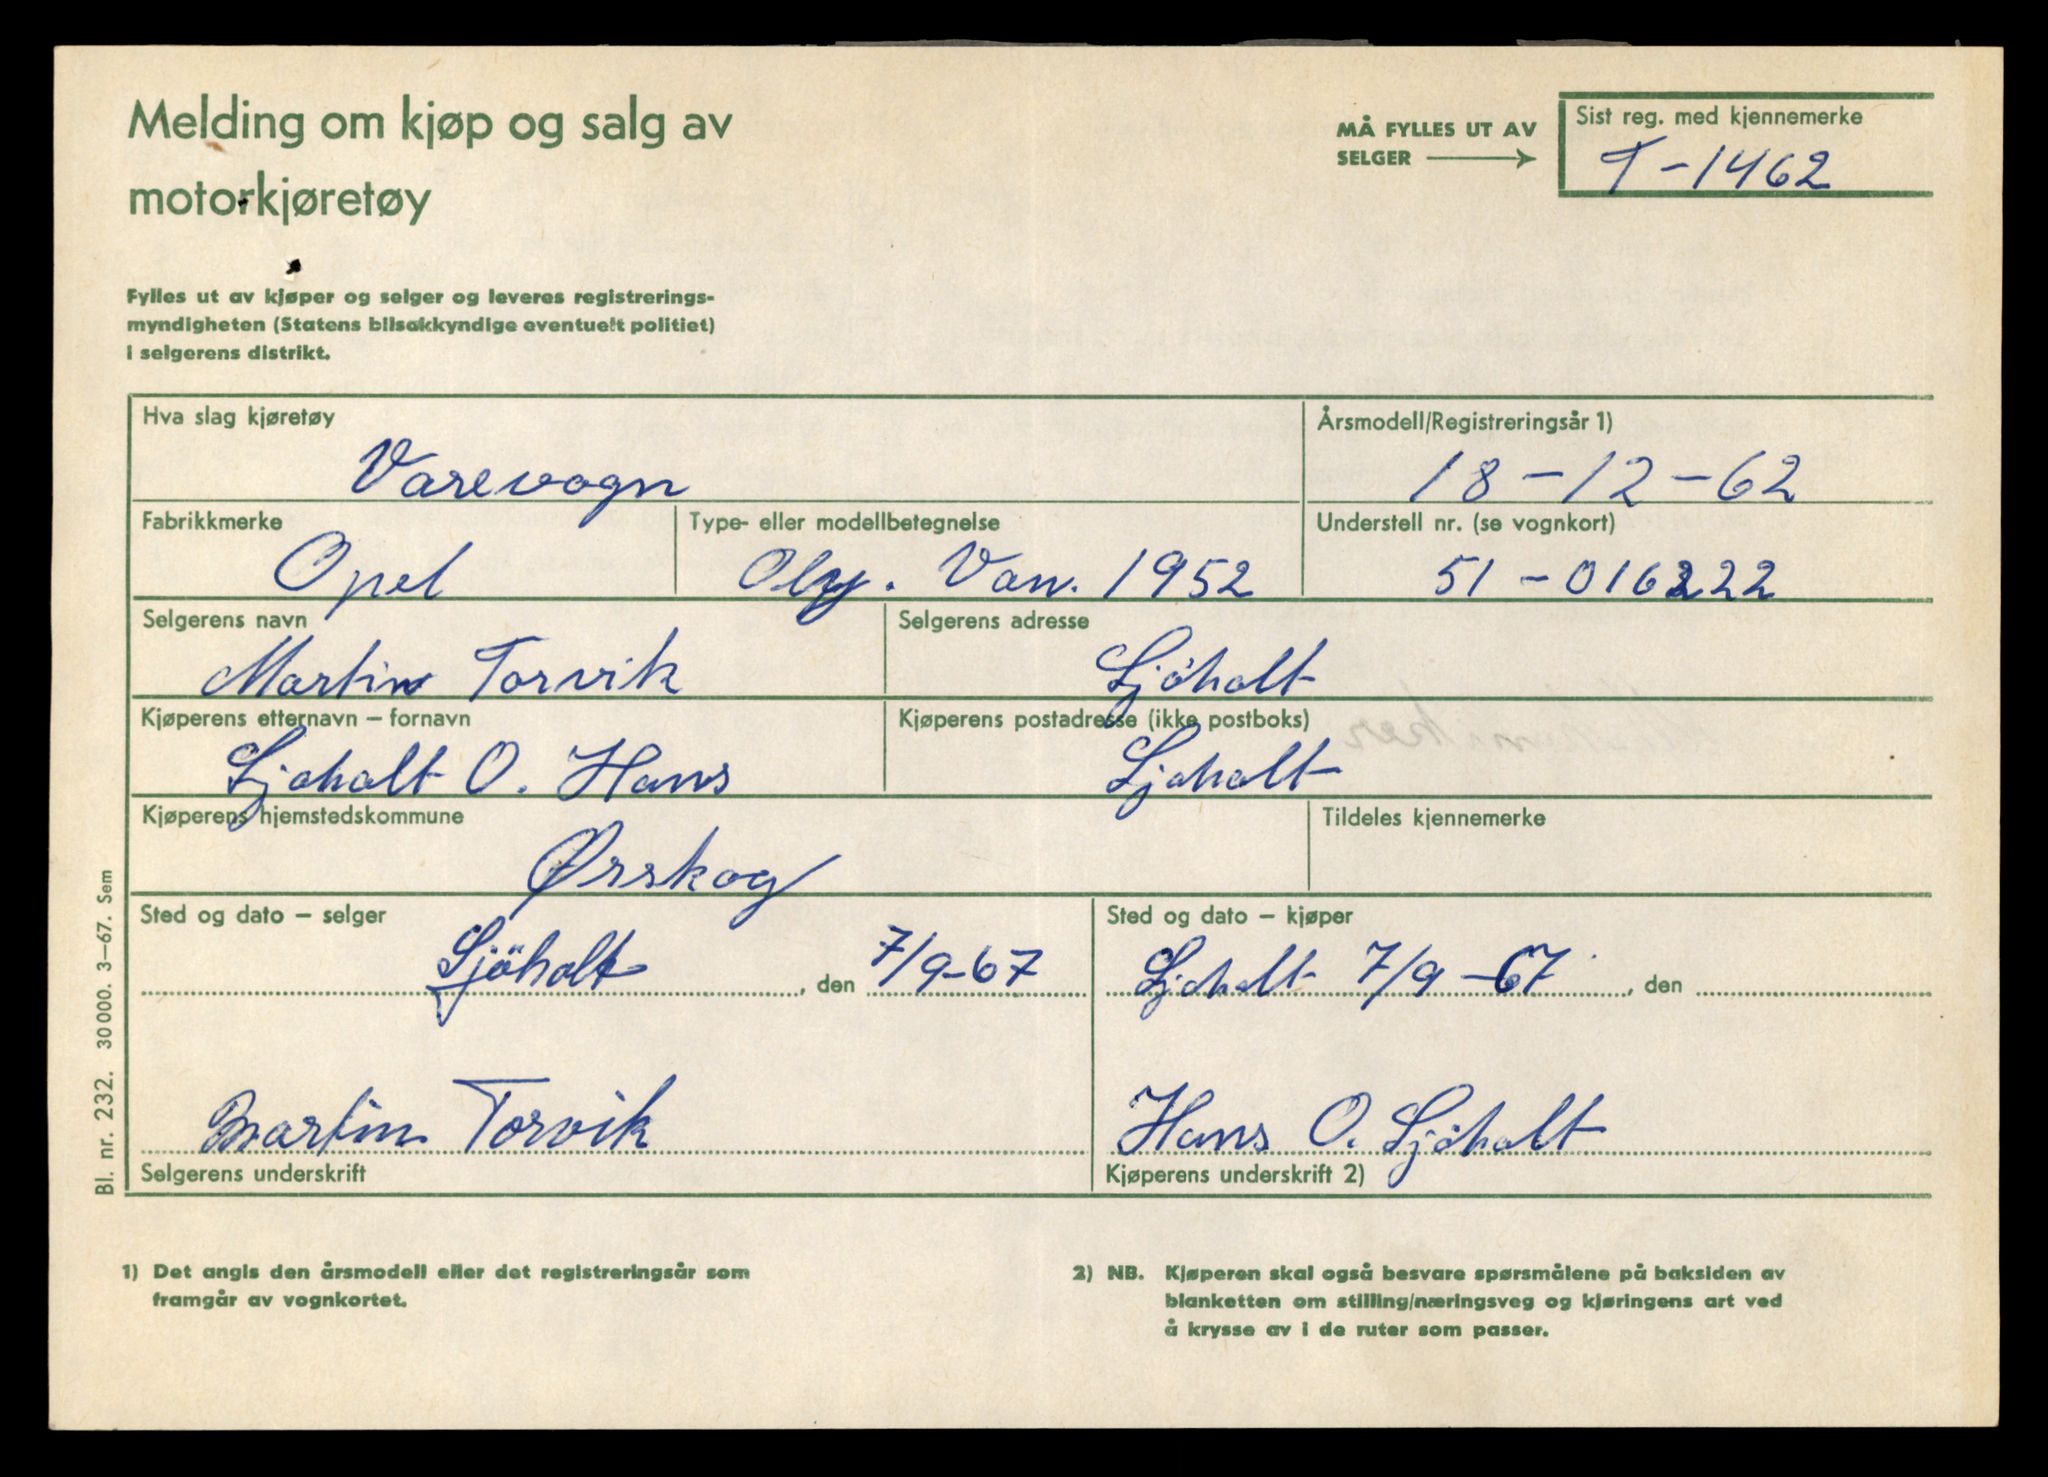 Melding om kjøp og salg av
motorkjøretøy
MÅ FYLLES UT AV
SELGER
Sist reg. med kjennemerke
T-1462
Fylles ut av kjøper og selger og leveres registrerings-
myndigheten (Statens bilsakkyndige eventuelt politiet)
i selgerens distrikt.
Hva slag kjøretøy
Varevogn
Årsmodell/Registreringsår 1)
18-12-62
Fabrikkmerke
Opel
Type- eller modellbetegnelse
Oly. Van. 1952
Understell nr. (se vognkort)
51-
Selgerens navn
Martin Torvik
Selgerens adresse
Sjöholt
Kjøperens etternavn – fornavn
Sjøholt O. Hans
Kjøperens postadresse (ikke postboks)
Sjøholt
Kjøperens hjemstedskommune
Ørskog
Tildeles kjennemerke
Sted og dato – selger
Sjöholt, den 7/9-67
Sted og dato – kjøper
Sjøholt 7/9-67, den
Martin Torvik
Selgerens underskrift
Hans O. Sjøholt
Kjøperens underskrift 2)
Bl. nr. 232. 30 000. 3–67. Sem
1) Det angis den årsmodell eller det registreringsår som
framgår av vognkortet.
2) NB. Kjøperen skal også besvare spørsmålene på baksiden av
blanketten om stilling/næringsveg og kjøringens art ved
å krysse av i de ruter som passer.